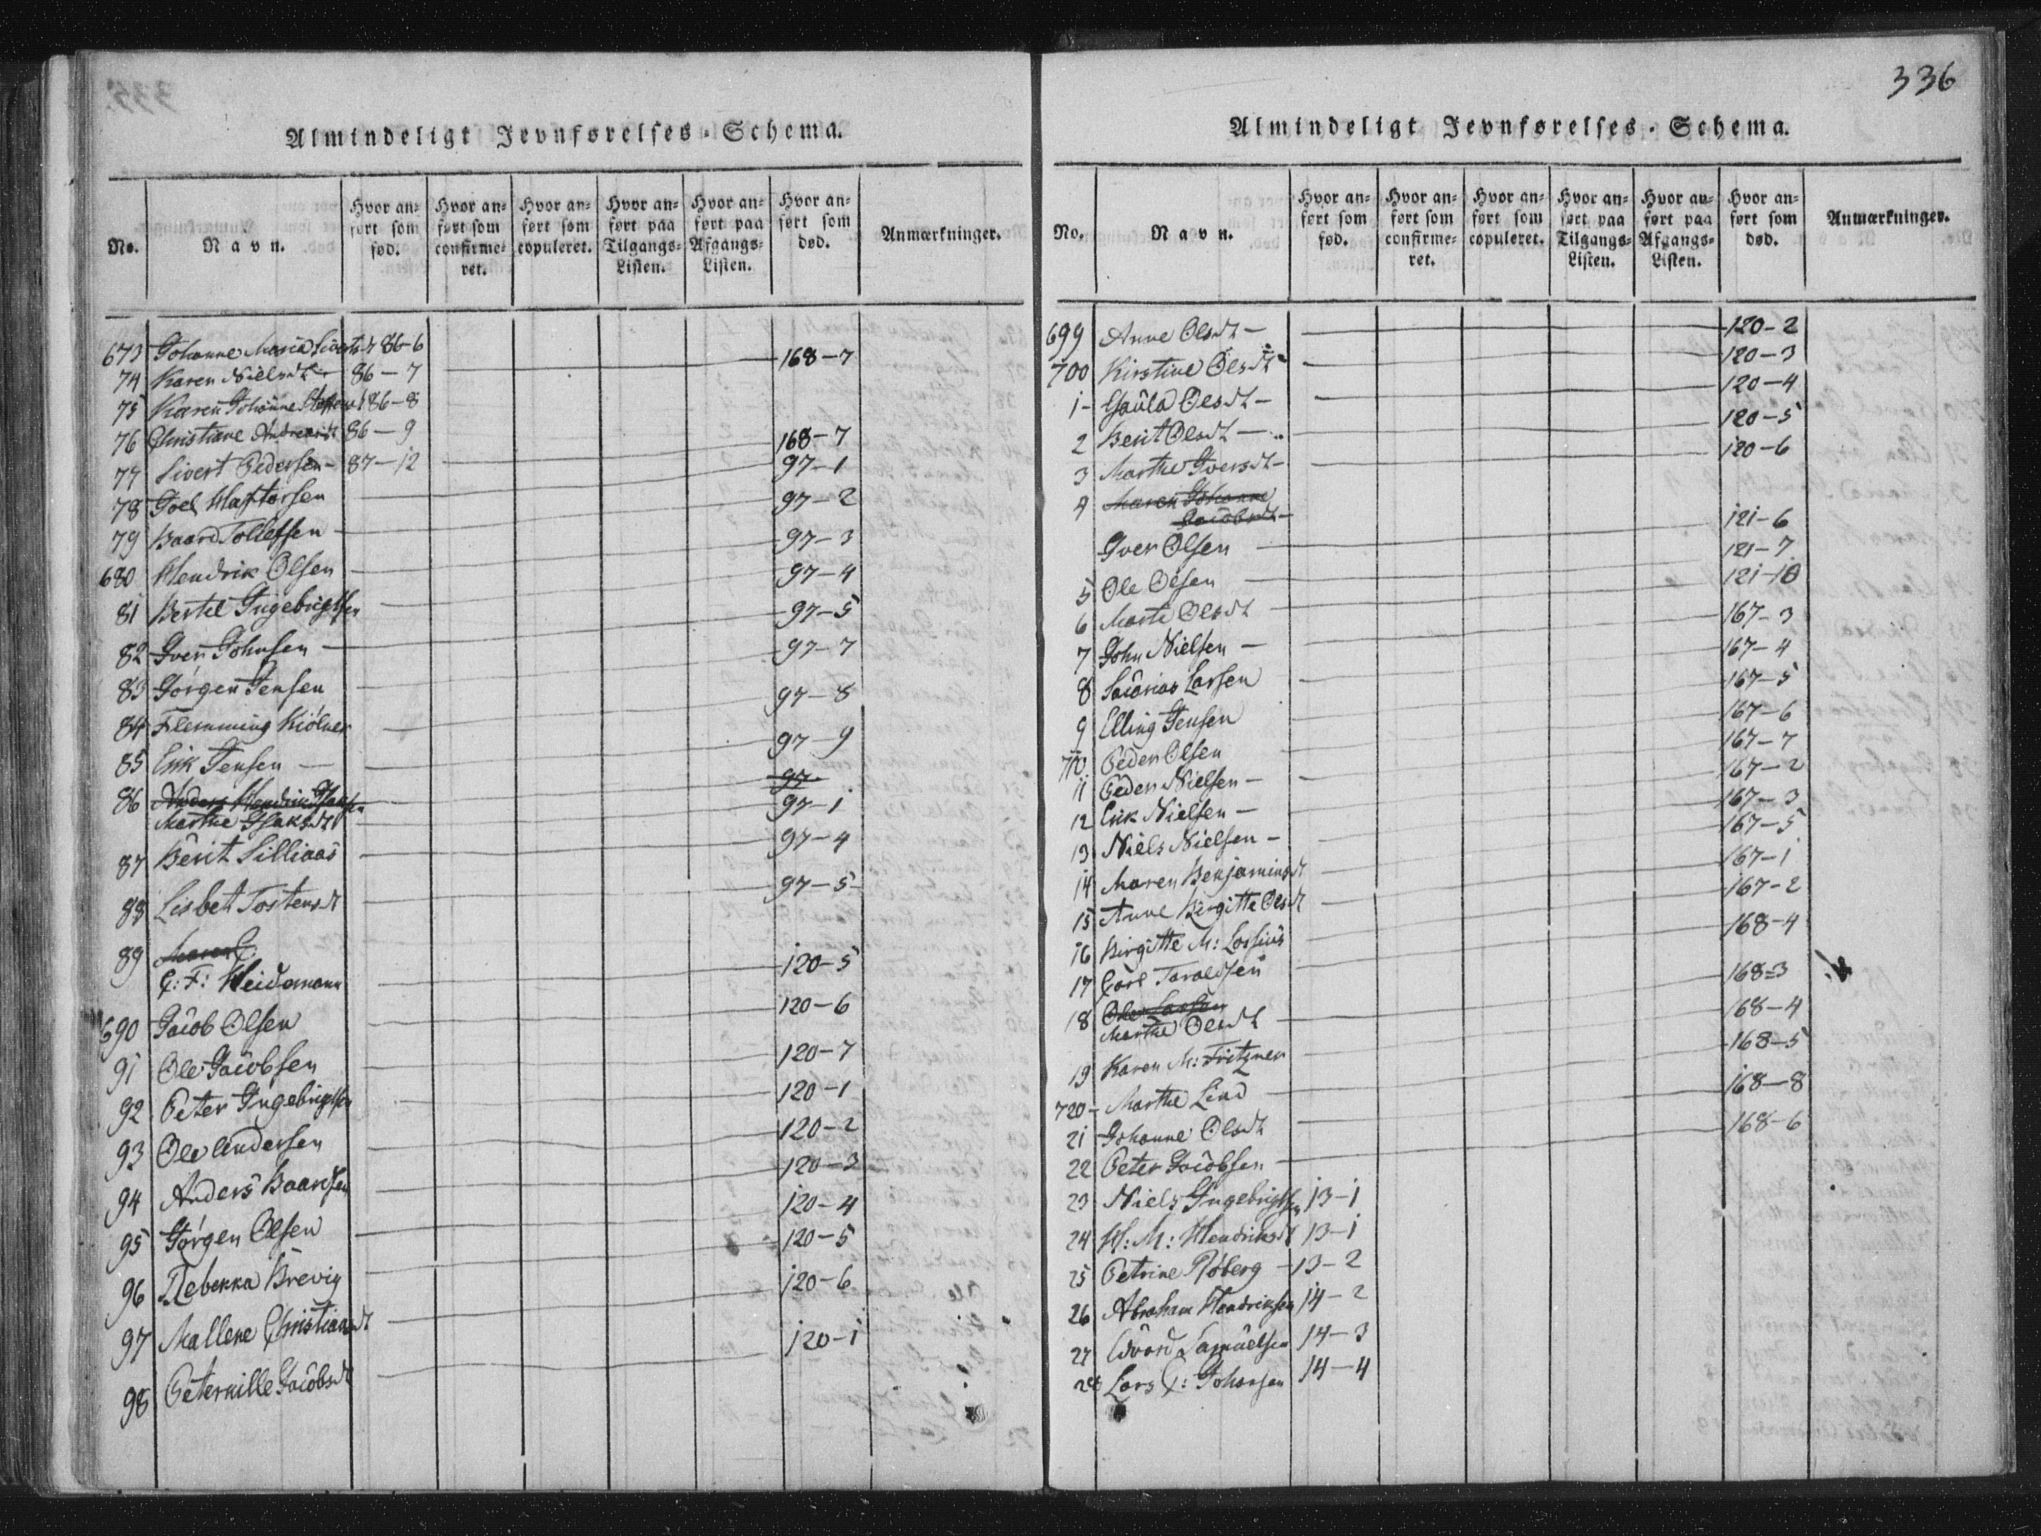 Almindeligt Jevnførelses-Schema.
No. Navn. Hvor anført som fød. Hvor anført som confirmeret. Hvor anført som copuleret. Hvor anført paa Tilgangs-Listen. Hvor anført paa Afgangs-Listen. Hvor anført som død. Anmærkninger.
673 Johanne Maria Sivertsdt 86-6
74 Karen Nielsdt 86-7 168-7
75 Karen Johanne 86-8
76 Christiane Andreasdt 86-9
77 Sivert Pedersen 87-12 168-7
78 Joel Haftorsen 97-1
79 Baard Tollefsen 97-2
680 Hendrik Olsen 97-3
81 Bertel Ingebrigtsen 97-4
82 Iver Johnsen 97-5
83 Jørgen Jensen 97-7
84 Flemming Kiølner 97-8
85 Erik Jensen 97-9
86 Anders Hendrik Isaksen 97-
Marthe Isaksdt 97-1
87 Berit Silliaas 97-4
88 Lisbet Tostensdt 97-5
89 Maren C
C: F: Heidemann 120-5
690 Jacob Olsen 120-6
91 Ole Jacobsen 120-7
92 Peter Ingebrigtsen 120-1
93 Ole Andersen 120-2
94 Anders Baardsen 120-3
95 Jørgen Olsen 120-4
96 Rebekka Brevig 120-5
97 Mallene Christiansdt 120-6
98 Peternille Jacobsdt 120-1
336
Almindeligt Jevnførelses-Schema.
No. Navn. Hvor anført som fød. Hvor anført som confirmeret. Hvor anført som copuleret. Hvor anført paa Tilgangs-Listen. Hvor anført paa Afgangs-Listen. Hvor anført som død. Anmærkninger.
699 Anne Olsdt 120-2
700 Kirstine Olsdt 120-3
1 Olsdt 120-4
2 Berit Olsdt 120-5
3 Marthe Iversdt 120-6
4 Maren Johanne
Jacobsdt
Iver Olsen 121-6
5 Ole Olsen 121-7
6 Marte Olsdt 121-10
7 John Nielsen 167-3
8 Sacarias Larsen 167-4
9 Elling Jensen 167-5
710 Peder Olsen 167-6
11 Peder Nielsen 167-7
12 Erik Nielsen 167-2
13 Niels Nielsen 167-3
14 Maren Benjaminsdt 167-5
15 Anne Birgitte Olsdt 167-1
16 Birgitte M: Lossius 167-2
17 Carl Taraldsen 168-4
18 Ole Larsen
Marthe Olsdt 168-3
19 Karen M: Fritzner 168-4
720 Marthe Lind 168-5
21 Johanne Olsdt 168-8
22 Peter Jacobsen 168-6
23 Niels Ingebrigtsen 13-1
24 H: M: Hendriksdt 13-1
25 Petrine Røberg 13-2
26 Abraham Hendriksen 14-2
27 Edvard Samuelsen 14-3
28 Lars C: Johansen 14-4